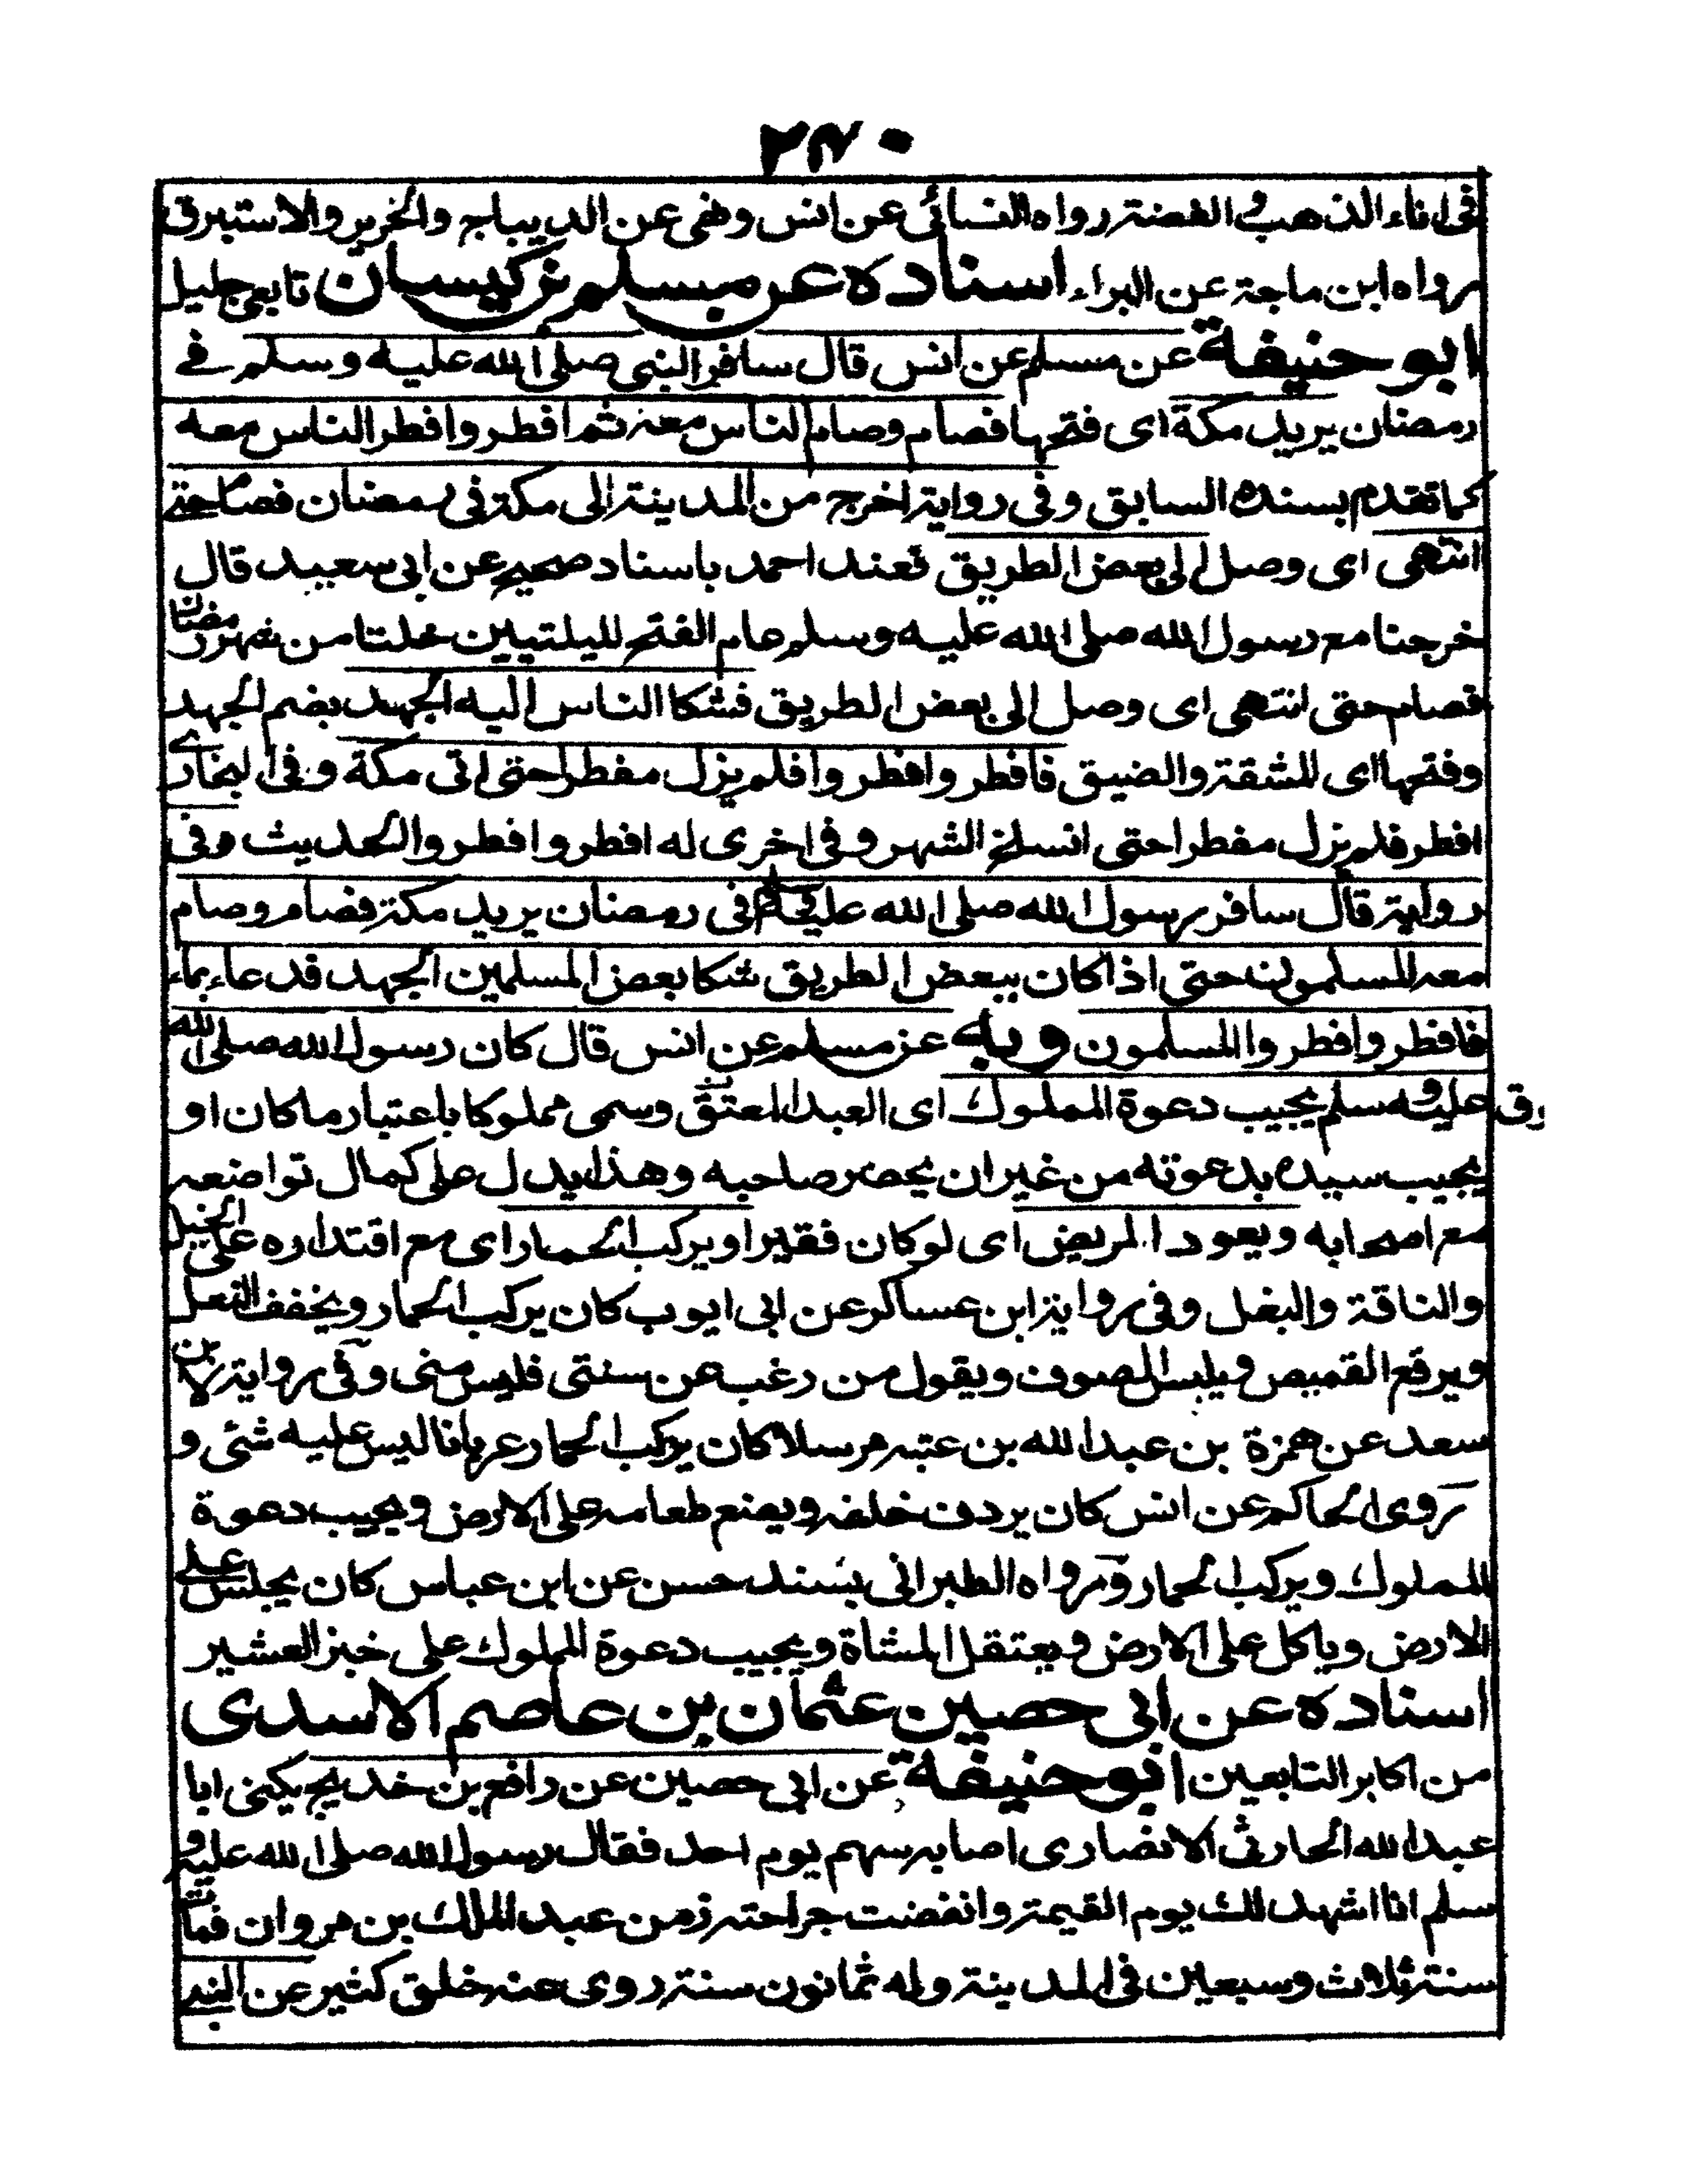 ٢٧٠
فى اناء الذهب و الفضة رواه النسائى عن انس ونهى عن الديباج والحرير والاستبرق
رواه ابن ماجة عن البراء اسناده عن مسلم بن كيسان تابعى جليل
ابو حنيفة عن مسلم عن انس قال سافر النبى صلى الله عليه وسلم فى
رمضان يريد مكة اى فتحها فصام وصام الناس معه ثم افطر وافطر الناس معه
كما تقدم بسنده السابق وفى رواية اخرج من المدينة الى مكة فى رمضان فصام حتى
انتهى اى وصل الى بعض الطريق فعند احمد باسناد صحيح عن ابى سعيد قال
خرجنا مع رسول الله صلى الله عليه وسلم عام الفتح لليلتيين خلتا من شهر رمضان
فصام حتى انتهى اى وصل الى بعض الطريق فشكا الناس اليه الجهد بضم الجهد
وفتحها اى المشقة والضيق فافطر وافطروا فلم يزل مفطرا حتى اتى مكة وفى البخارى
افطر فلم يزل مفطرا حتى انسلخ الشهر وفى اخرى له افطر وافطروا الحديث وفى
رواية قال سافر رسول الله صلى الله عليه وسلم فى رمضان يريد مكة فصام وصام
معه المسلمون حتى اذا كان ببعض الطريق شكا بعض المسلمين الجهد فدعاء بماء
فافطر وافطر والمسلمون وبه عن مسلم عن انس قال كان رسول الله صلى الله
عليه وسلم يجيب دعوة المملوك اى العبد المعتق وسمى مملوكا باعتبار ما كان او
يجيب سيده بدعوته من غير ان يحضر صاحبه وهذا يدل على كمال تواضعه
مع اصحابه ويعود المريض اى لو كان فقيرا ويركب الحمار اى مع اقتداره على الخيل
والناقة والبغل وفى رواية ابن عساكر عن ابى ايوب كان يركب الحمار ويخفف النعل
ويرقع القميص ويلبس الصوف ويقول من رغب عن سنتى فليس منى وفى رواية لابن
سعد عن حمزة بن عبد الله بن عتبه مرسلا كان يركب الحمار عريانا ليس عليه شئى و
روى الحاكم عن انس كان يردف خلفه ويضع طعامه على الارض ويجيب دعوة
المملوك ويركب الحمار ورواه الطبرانى بسند حسن عن ابن عباس كان يجلس على
الارض وياكل على الارض ويعتقل المشاة ويجيب دعوة المملوك على خبز العشير
اسناده عن ابى حصين عثمان بن عاصم الاسدى
من اكابر التابعين ابو حنيفة عن ابى حصين عن رافع بن خديج يكنى ابا
عبد الله الحارثى الانصارى اصابه سهم يوم احد فقال رسول الله صلى الله عليه و
سلم انا اشهد لك يوم القيمة وانفضت جراحته زمن عبد الملك بن مروان فمات
سنة ثلاث وسبعين فى المدينة وله ثمانون سنة روى عنه خلق كثير عن النبى